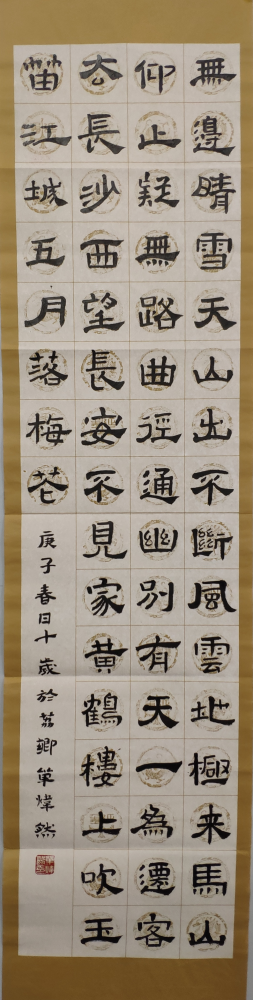 無邊晴雪天山出不斷風雲地極来馬山
仰止疑無路曲徑通幽別有天一為遷客
去長沙西望長安不見家黃鶴樓上吹玉
笛江城五月落梅花
庚子春日十歲於荔鄉煒然